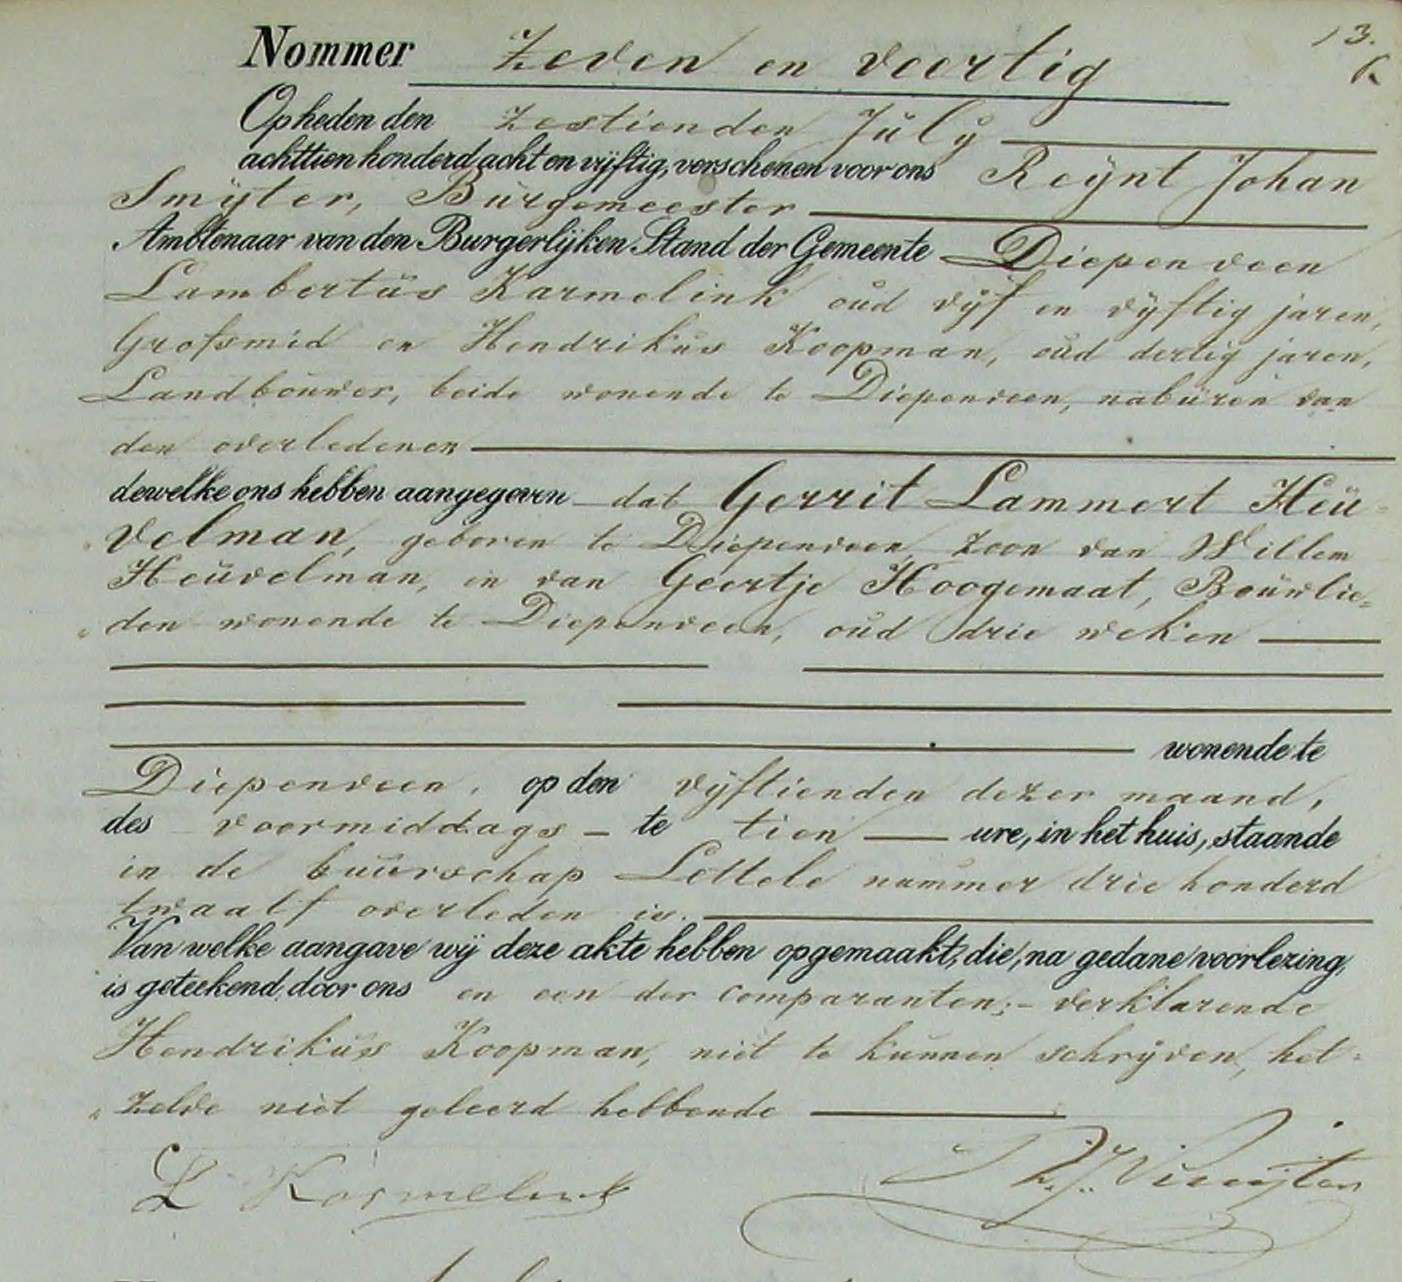 13.
Nommer Zeven en veertig
Op heden den zestienden July
achttien honderd acht en vijftig, verschenen voor ons Reijnt Johan
Smijter, Burgemeester
Ambtenaar van den Burgerlijken Stand der Gemeente Diepenveen
Lambertus Karmelink oud vijf en vijftig jaren,
Grofsmid en Hendrikus Koopman, oud dertig jaren,
Landbouwer, beide wonende te Diepenveen, naburen van
den overledenen
dewelke ons hebben aangegeven dat Gerrit Lammert Heu-
velman, geboren te Diepenveen, zoon van Willem
Heuvelman, en van Geertje Hoogemaat, Bouwlie=
„den wonende te Diepenveen, oud drie weken
wonende te
Diepenveen, op den vijftienden dezer maand,
des voormiddags te tien ure, in het huis, staande
in de buurschap Lettele nummer drie honderd
twaalf overleden is.
Van welke aangave wij deze akte hebben opgemaakt, die, na gedane voorlezing,
is geteekend door ons en een der comparanten; - verklarende
Hendrikus Koopman, niet te kunnen schrijven, het-
„zelve niet geleerd hebbende
L Karmelink